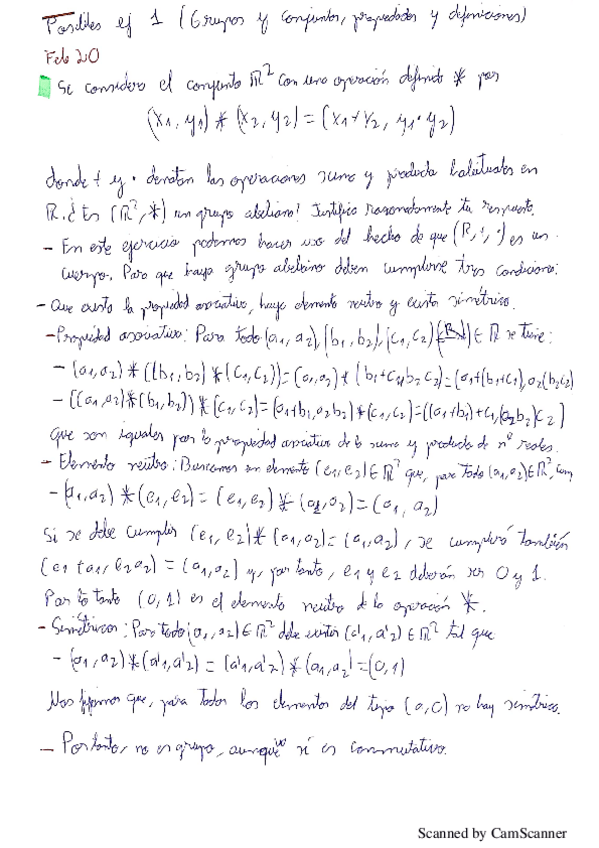 Posibles ej 1 (Grupos y conjuntos, propiedades y definiciones)
Feb 20
Se considera el conjunto ℝ² con una operación definida * por
(x1, y1) * (x2, y2) = (x1 + x2, y1 · y2)
donde + y · denotan las operaciones suma y producto habituales en
ℝ. ¿Es (ℝ², *) un grupo abeliano? Justifica razonadamente tu respuesta.
- En este ejercicio podemos hacer uso del hecho de que (ℝ, ·, ·) es un
cuerpo. Para que haya grupo abeliano deben cumplirse tres condiciones:
- Que exista la propiedad asociativa, haya elemento neutro y exista simétrico.
- Propiedad asociativa: Para todo (a1, a2), (b1, b2), (c1, c2) ∈ ℝ se tiene:
- (a1, a2) * ((b1, b2) * (c1, c2)) = (a1, a2) * (b1 + c1, b2 c2) = (a1 + (b1 + c1), a2(b2 c2)
- ((a1, a2) * (b1, b2)) * (c1, c2) = (a1 + b1, a2 b2) * (c1, c2) = ((a1 + b1) + c1, (a2 b2) c2)
que son iguales por la propiedad asociativa de la suma y producto de nº reales.
- Elemento neutro: Buscamos un elemento (e1, e2) ∈ ℝ² que, para todo (a1, a2) ∈ ℝ²,
- (a1, a2) * (e1, e2) = (e1, e2) * (a1, a2) = (a1, a2)
Si se debe cumplir (e1, e2) * (a1, a2) = (a1, a2), se cumplirá también
(e1 + a1, e2 a2) = (a1, a2) y, por tanto, e1 y e2 deberán ser 0 y 1.
Por lo tanto (0, 1) es el elemento neutro de la operación *.
- Simétricos: Para todo (a1, a2) ∈ ℝ² debe existir (a'1, a'2) ∈ ℝ² tal que
- (a1, a2) * (a'1, a'2) = (a'1, a'2) * (a1, a2) = (0, 1)
Nos fijamos que, para todos los elementos del tipo (a, 0) no hay simétrico.
- Por tanto, no es grupo, aunque sí es conmutativo.
Scanned by CamScanner